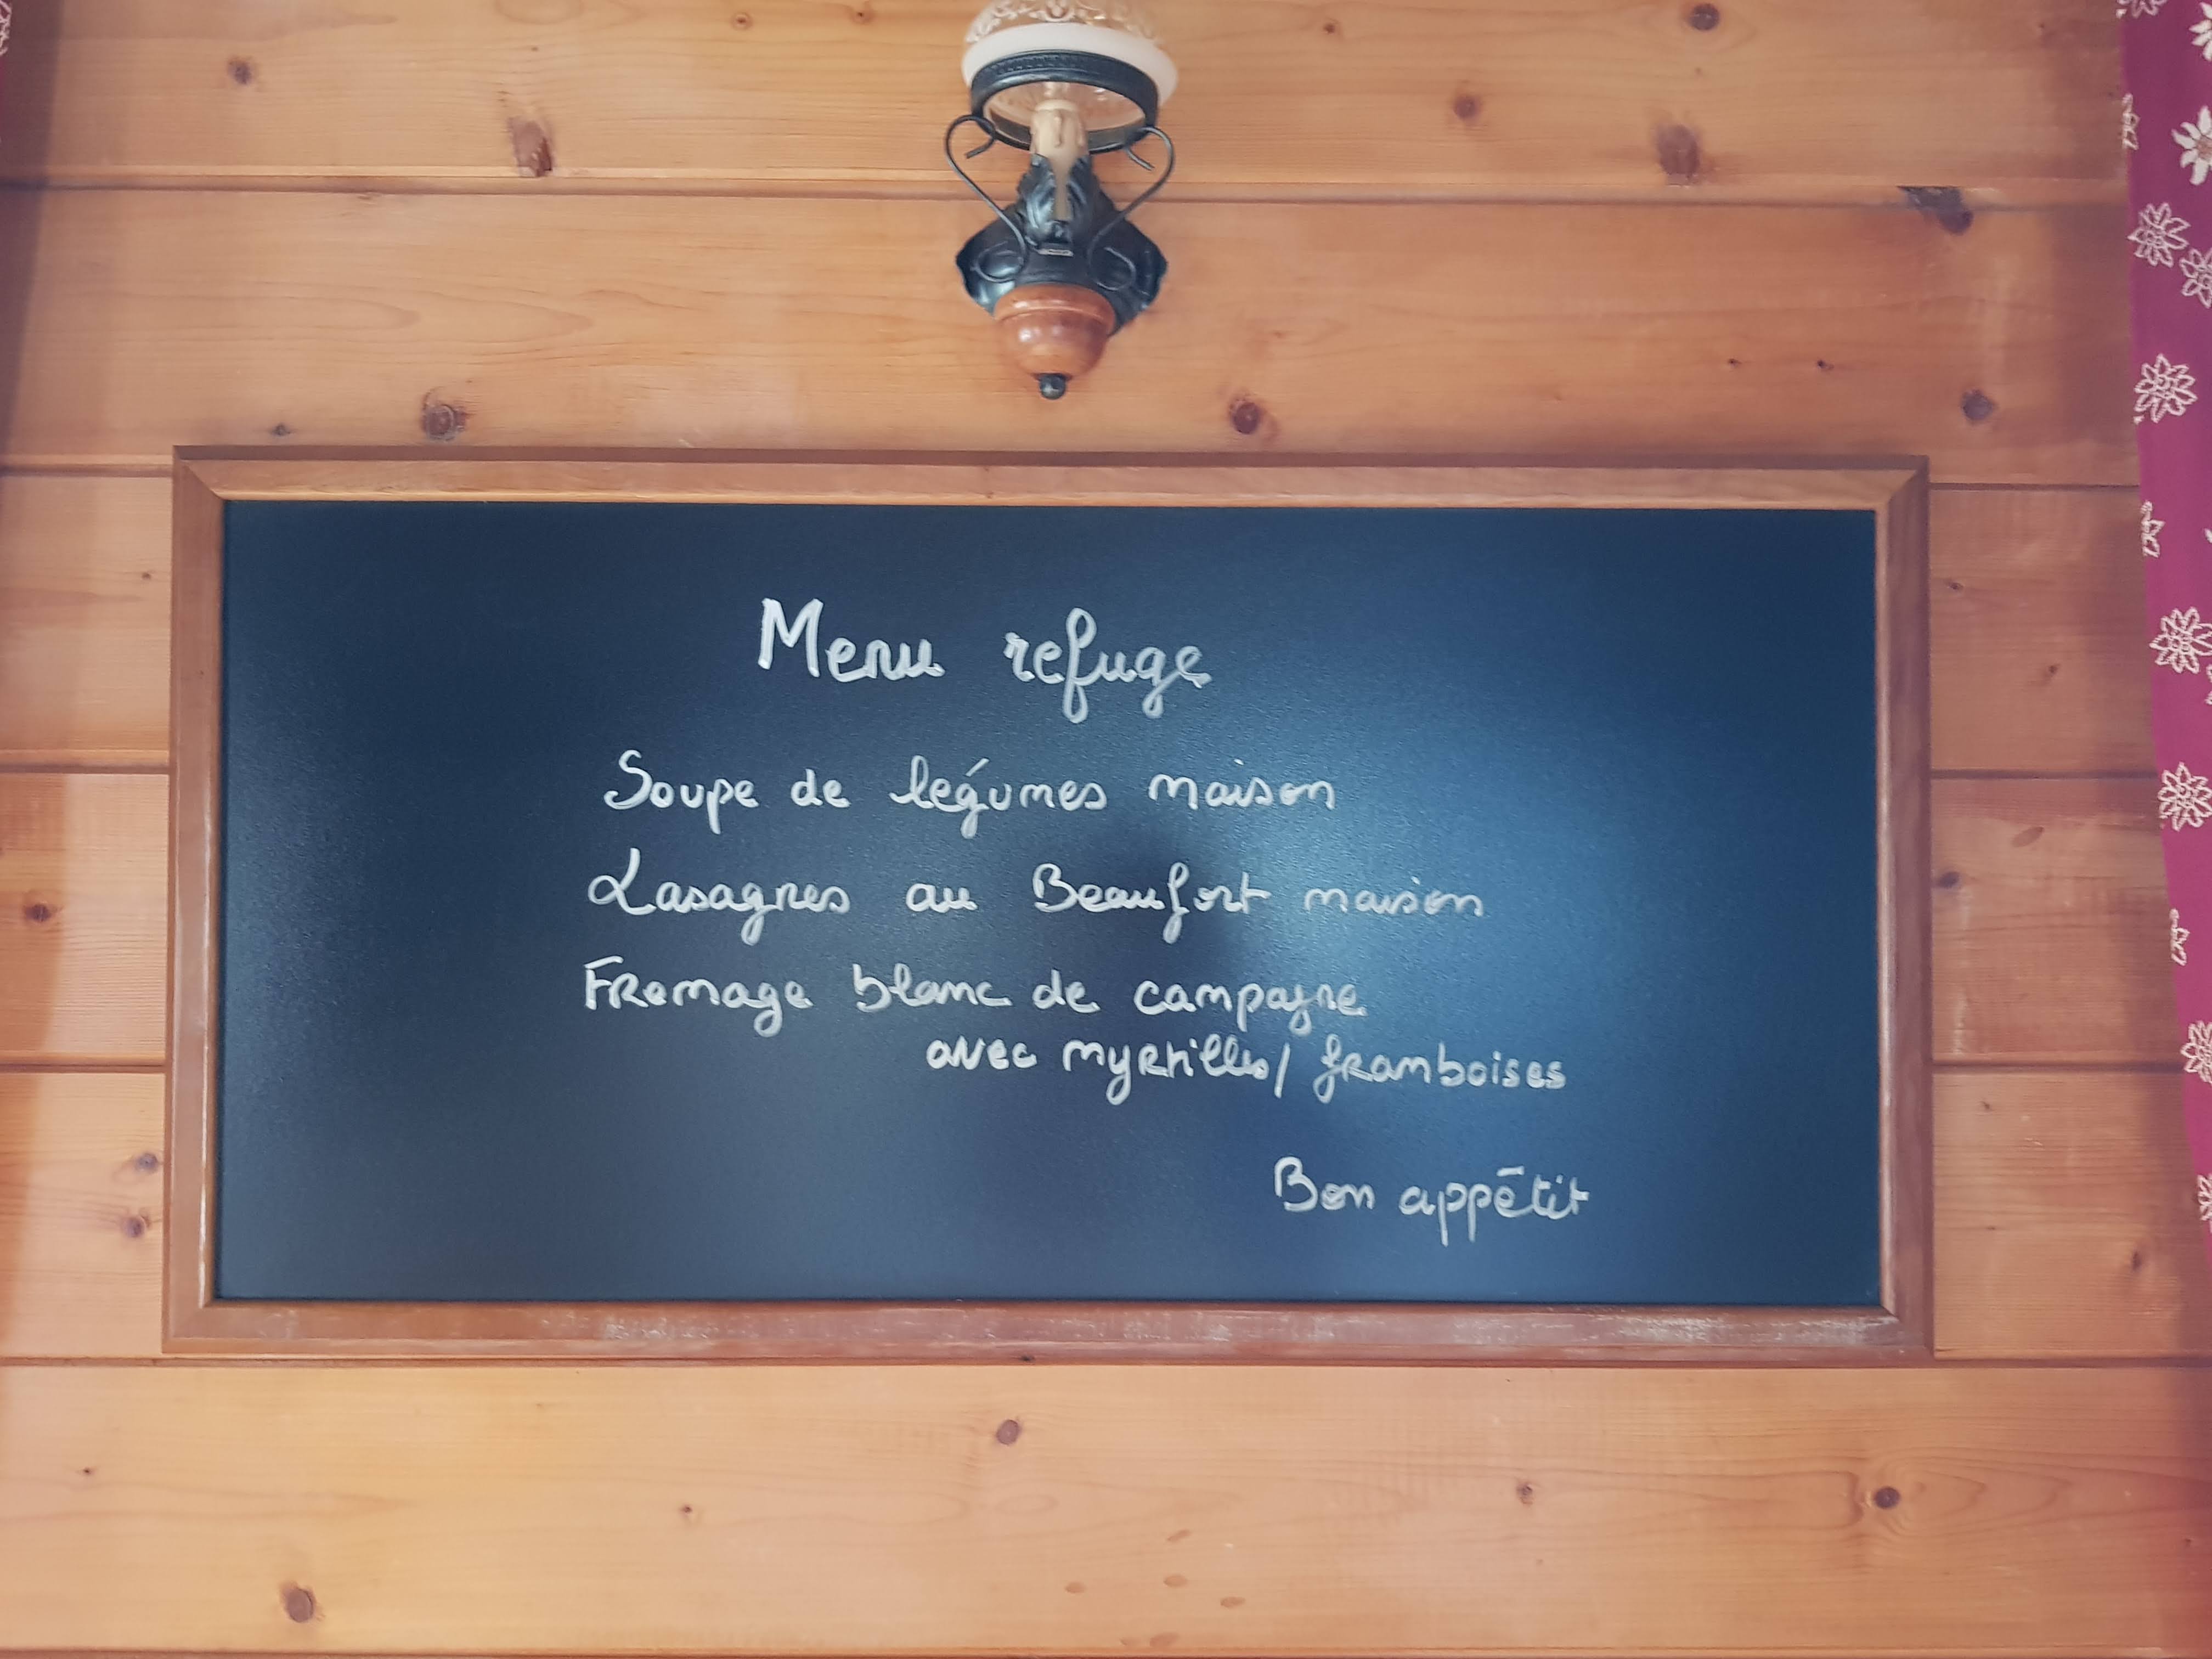 Menu refuge
Soupe de légumes maison
Lasagnes au Beaufort maison
Fromage blanc de campagne
avec myrtilles/ framboises
Bon appētit